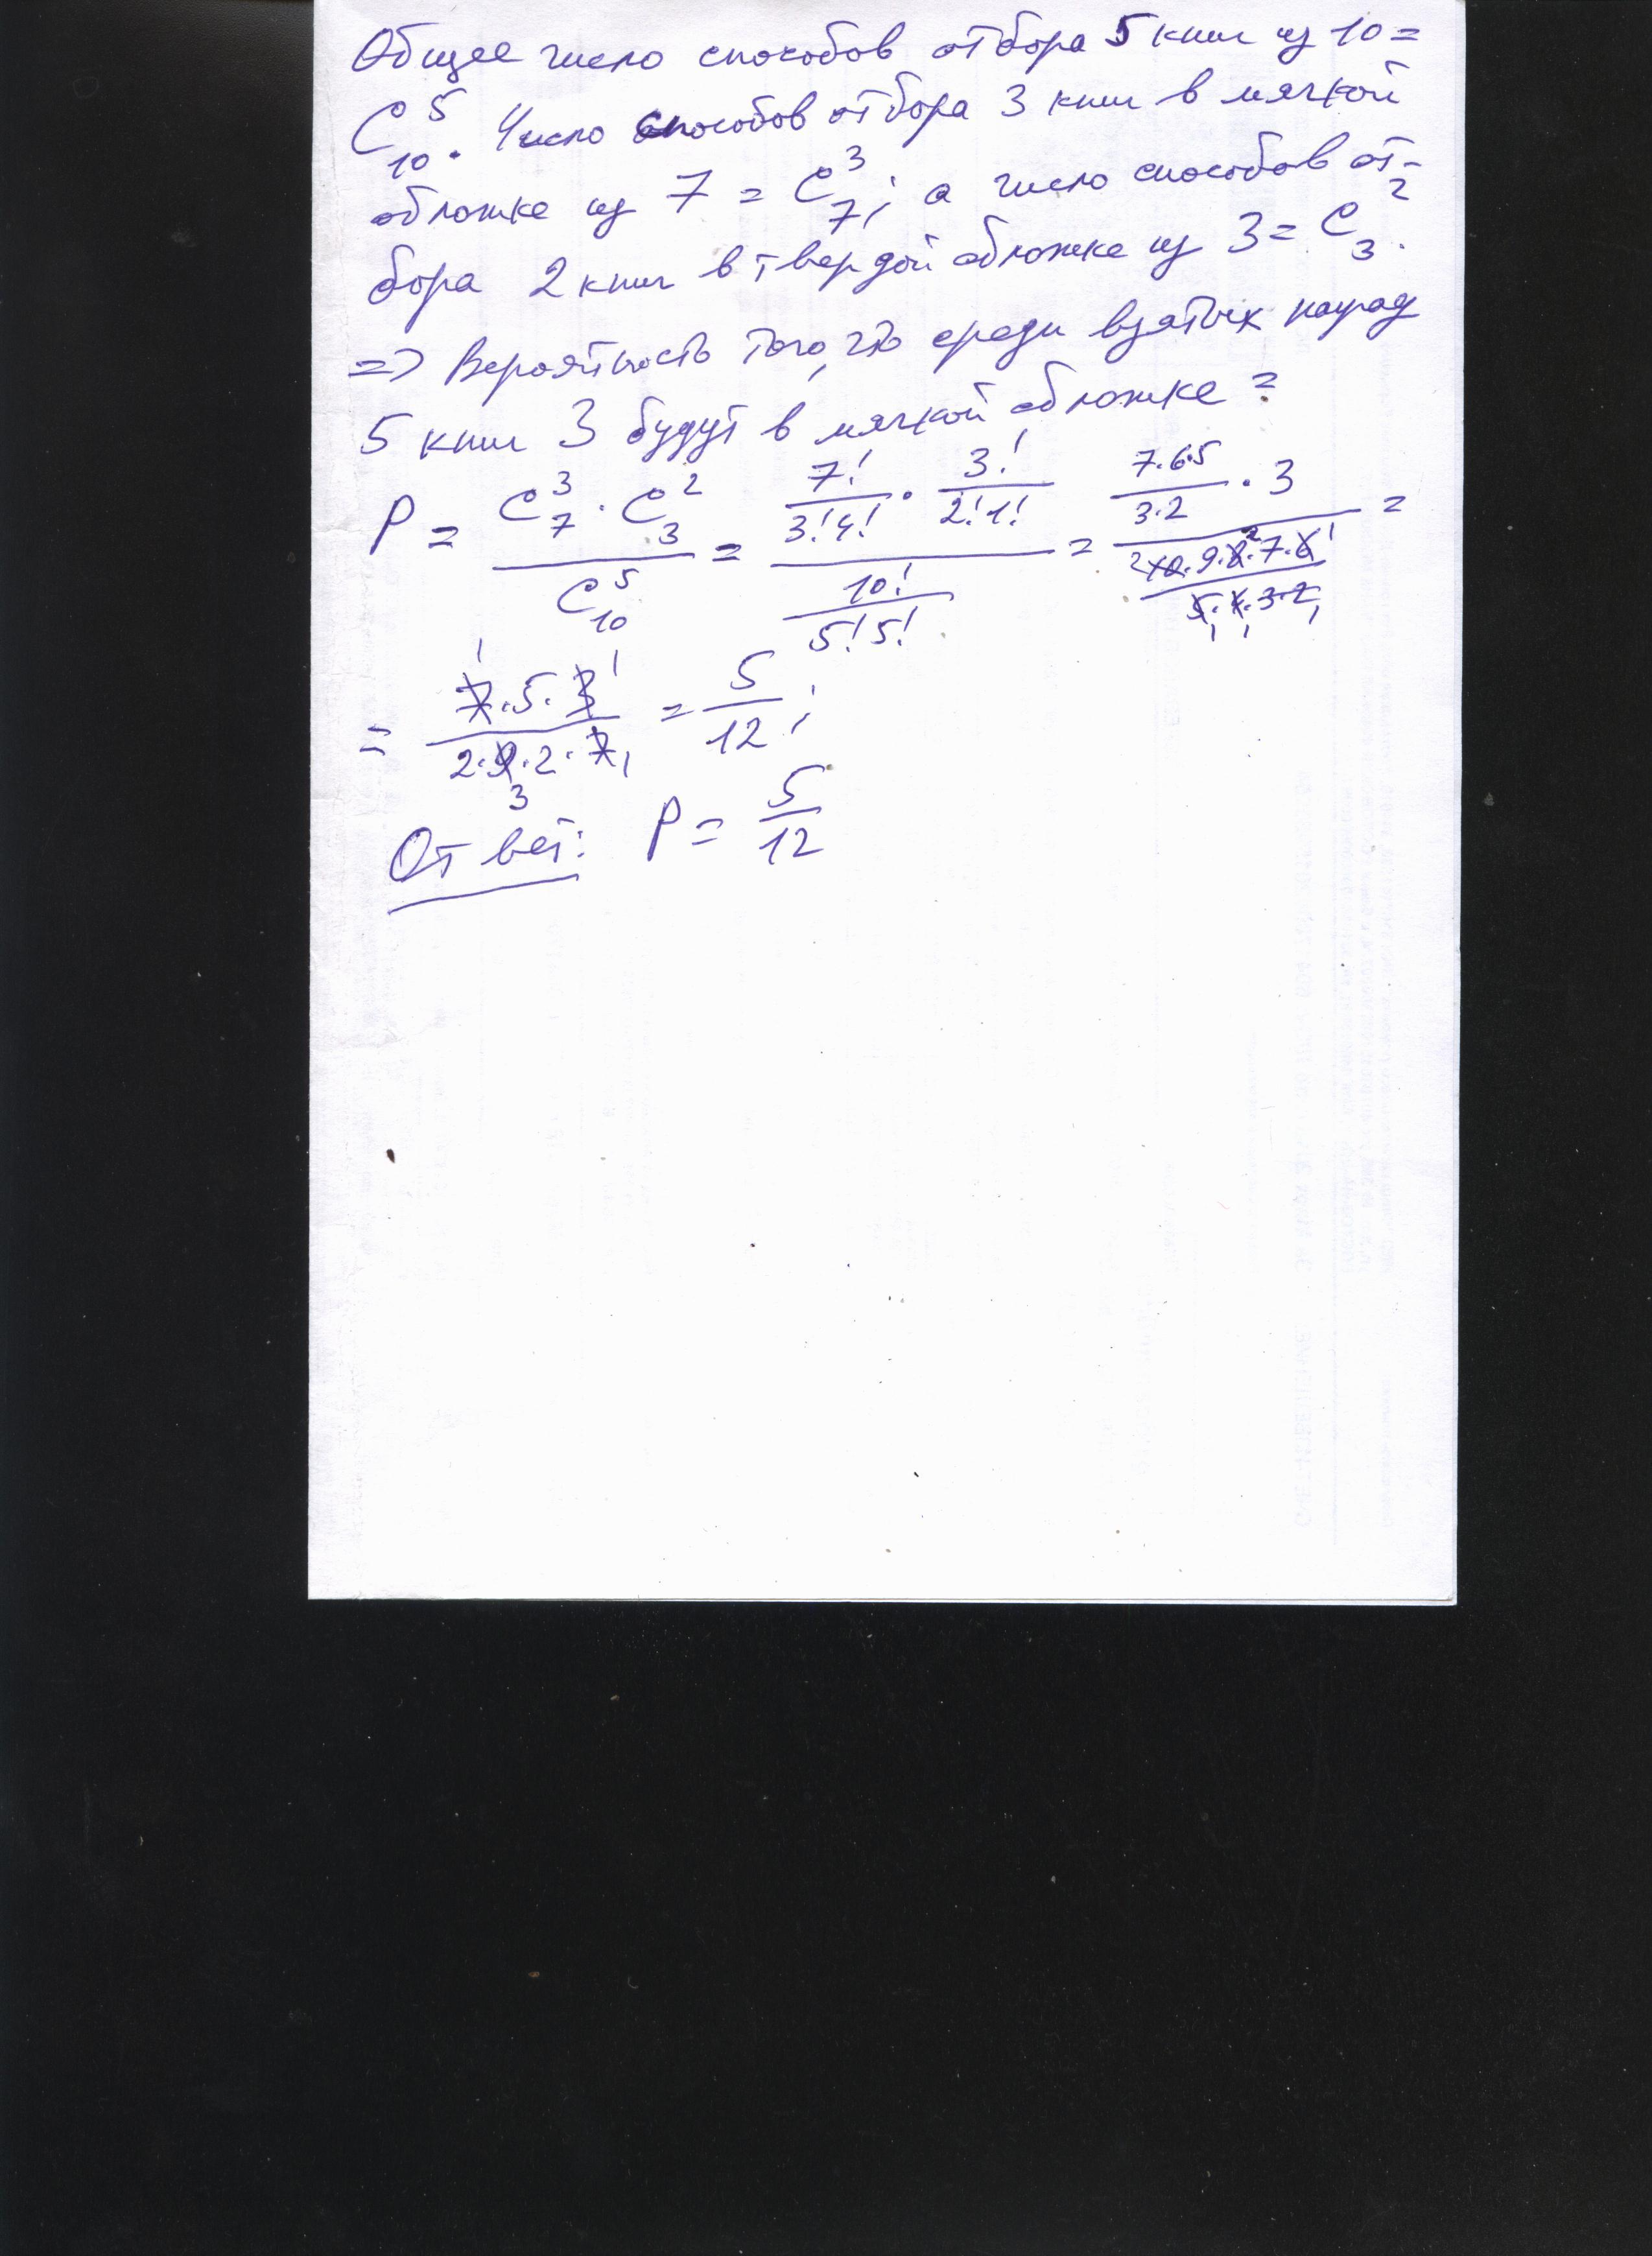 Общее число способов отбора 5 книг из 10 =
C₁₀⁵. Число способов отбора 3 книг в мягкой
обложке из 7 = C₇³; а число способов от-
бора 2 книг в твердой обложке из 3 = C₃².
=> Вероятность того, что среди взятых наугад
5 книг 3 будут в мягкой обложке =
P = (C₇³ · C₃²) / C₁₀⁵ = (7!/(3!4!) · 3!/(2!1!)) / (10!/(5!5!)) = (7·6·5/(3·2) · 3) / (10·9·8·7·6/(5·4·3·2)) =
= (7·5·3)/(2·9·2·7) = 5/12;
Ответ: P = 5/12